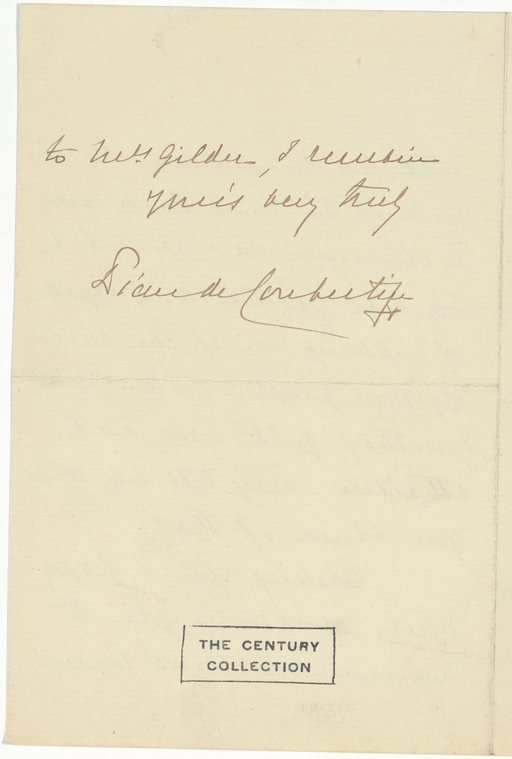 to Mrs Gilder, I remain
Yours very truly
Pierre de Coubertin
THE CENTURY
COLLECTION